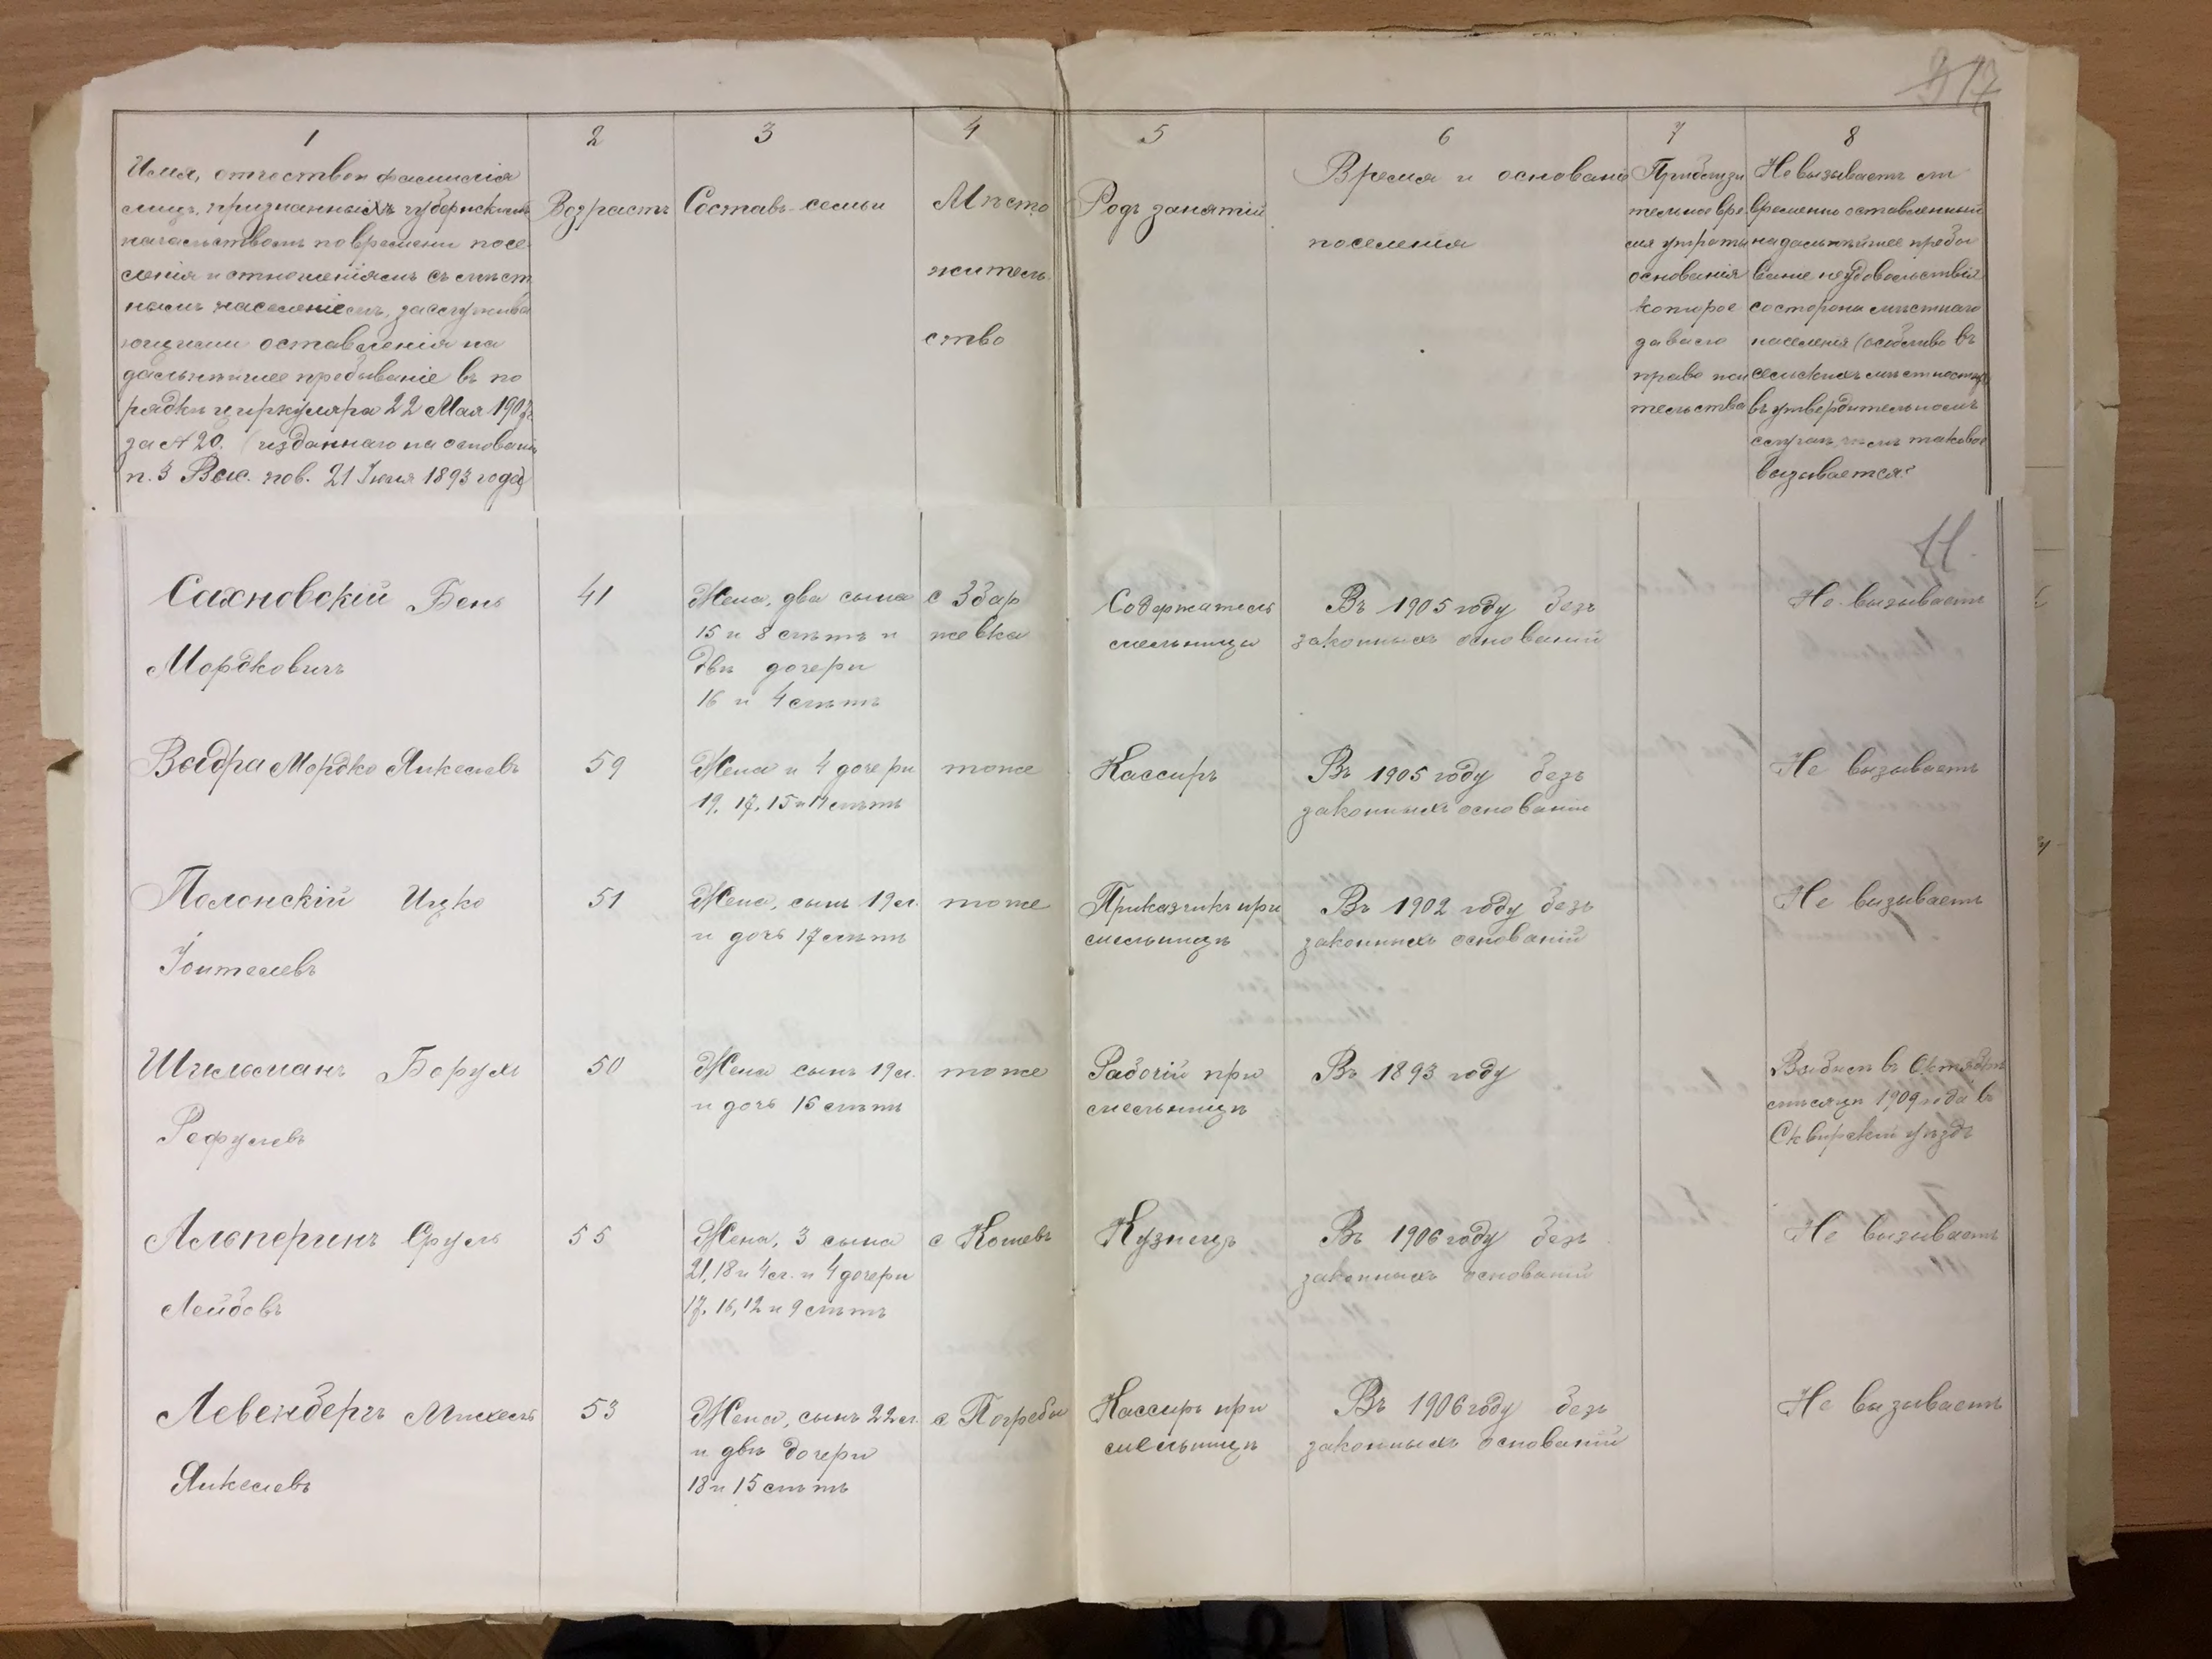 1
Имя, отчество и фамилія
лицъ, признанныхъ губернскимъ
начальствомъ по времени посе-
ленія и отношеніямъ съ мѣст
нымъ населеніемъ, заслужива
ющими оставленія на
дальнѣйшее пребываніе въ по
рядкѣ циркуляра 22 Мая 1907г.
за № 20. (изданнаго на основаніи
п. 3 Выс. пов. 21 Іюня 1893 года)
2
Возрастъ
3
Составъ семьи
4
Мѣсто
житель-
ство
5
Родъ занятій
6
Время и основаніе
поселенія
7
Приблизи
тельное вре-
мя утраты
основанія
которое
давало
право жи
тельства
8
Не вызываетъ ли
временно оставленный
на дальнѣйшее пребы
ваніе неудовольствія
со стороны мѣстнаго
населенія (особливо въ
сельскихъ мѣстностях
въ утвердительномъ
случаѣ, чѣмъ таковое
вызывается?
17
11.
Сахновскій Бень
Мордковичъ
41
Жена, два сына
15 и 8 лѣтъ и
двѣ дочери
16 и 4 лѣтъ
с Збар
жевка
Содержатель
мельницы
Въ 1905 году безъ
законныхъ основаній
Не вызываетъ
Выдра Мордко Янкелевъ
59
Жена и 4 дочери
19, 17, 15 и 11 лѣтъ
тоже
Кассиръ
Въ 1905 году безъ
законныхъ основаній
Не вызываетъ
Полонскій Ицко
Іоителевъ
51
Жена, сынъ 19 л.
и дочь 17 лѣтъ
тоже
Приказчикъ при
мельницѣ
Въ 1902 году безъ
законныхъ основаній
Не вызываетъ
Шчельманъ Борухъ
Рефулевъ
50
Жена сынъ 19 л.
и дочь 15 лѣтъ
тоже
Рабочій при
мельницѣ
Въ 1893 году
Выбылъ въ Октябрѣ
мѣсяцѣ 1909 года въ
Сквирскій уѣздъ
Альперинъ Сруль
Лейбовъ
55
Жена, 3 сына
21, 18 и 4 л. и 4 дочери
17, 16, 12 и 9 лѣтъ
с Кошевъ
Кузнецъ
Въ 1906 году безъ
законныхъ основаній
Не вызываетъ
Левенбергъ Михель
Янкелевъ
53
Жена, сынъ 22 л.
и двѣ дочери
18 и 15 лѣтъ
с Погребы
Кассиръ при
мельницѣ
Въ 1906 году безъ
законныхъ основаній
Не вызываетъ